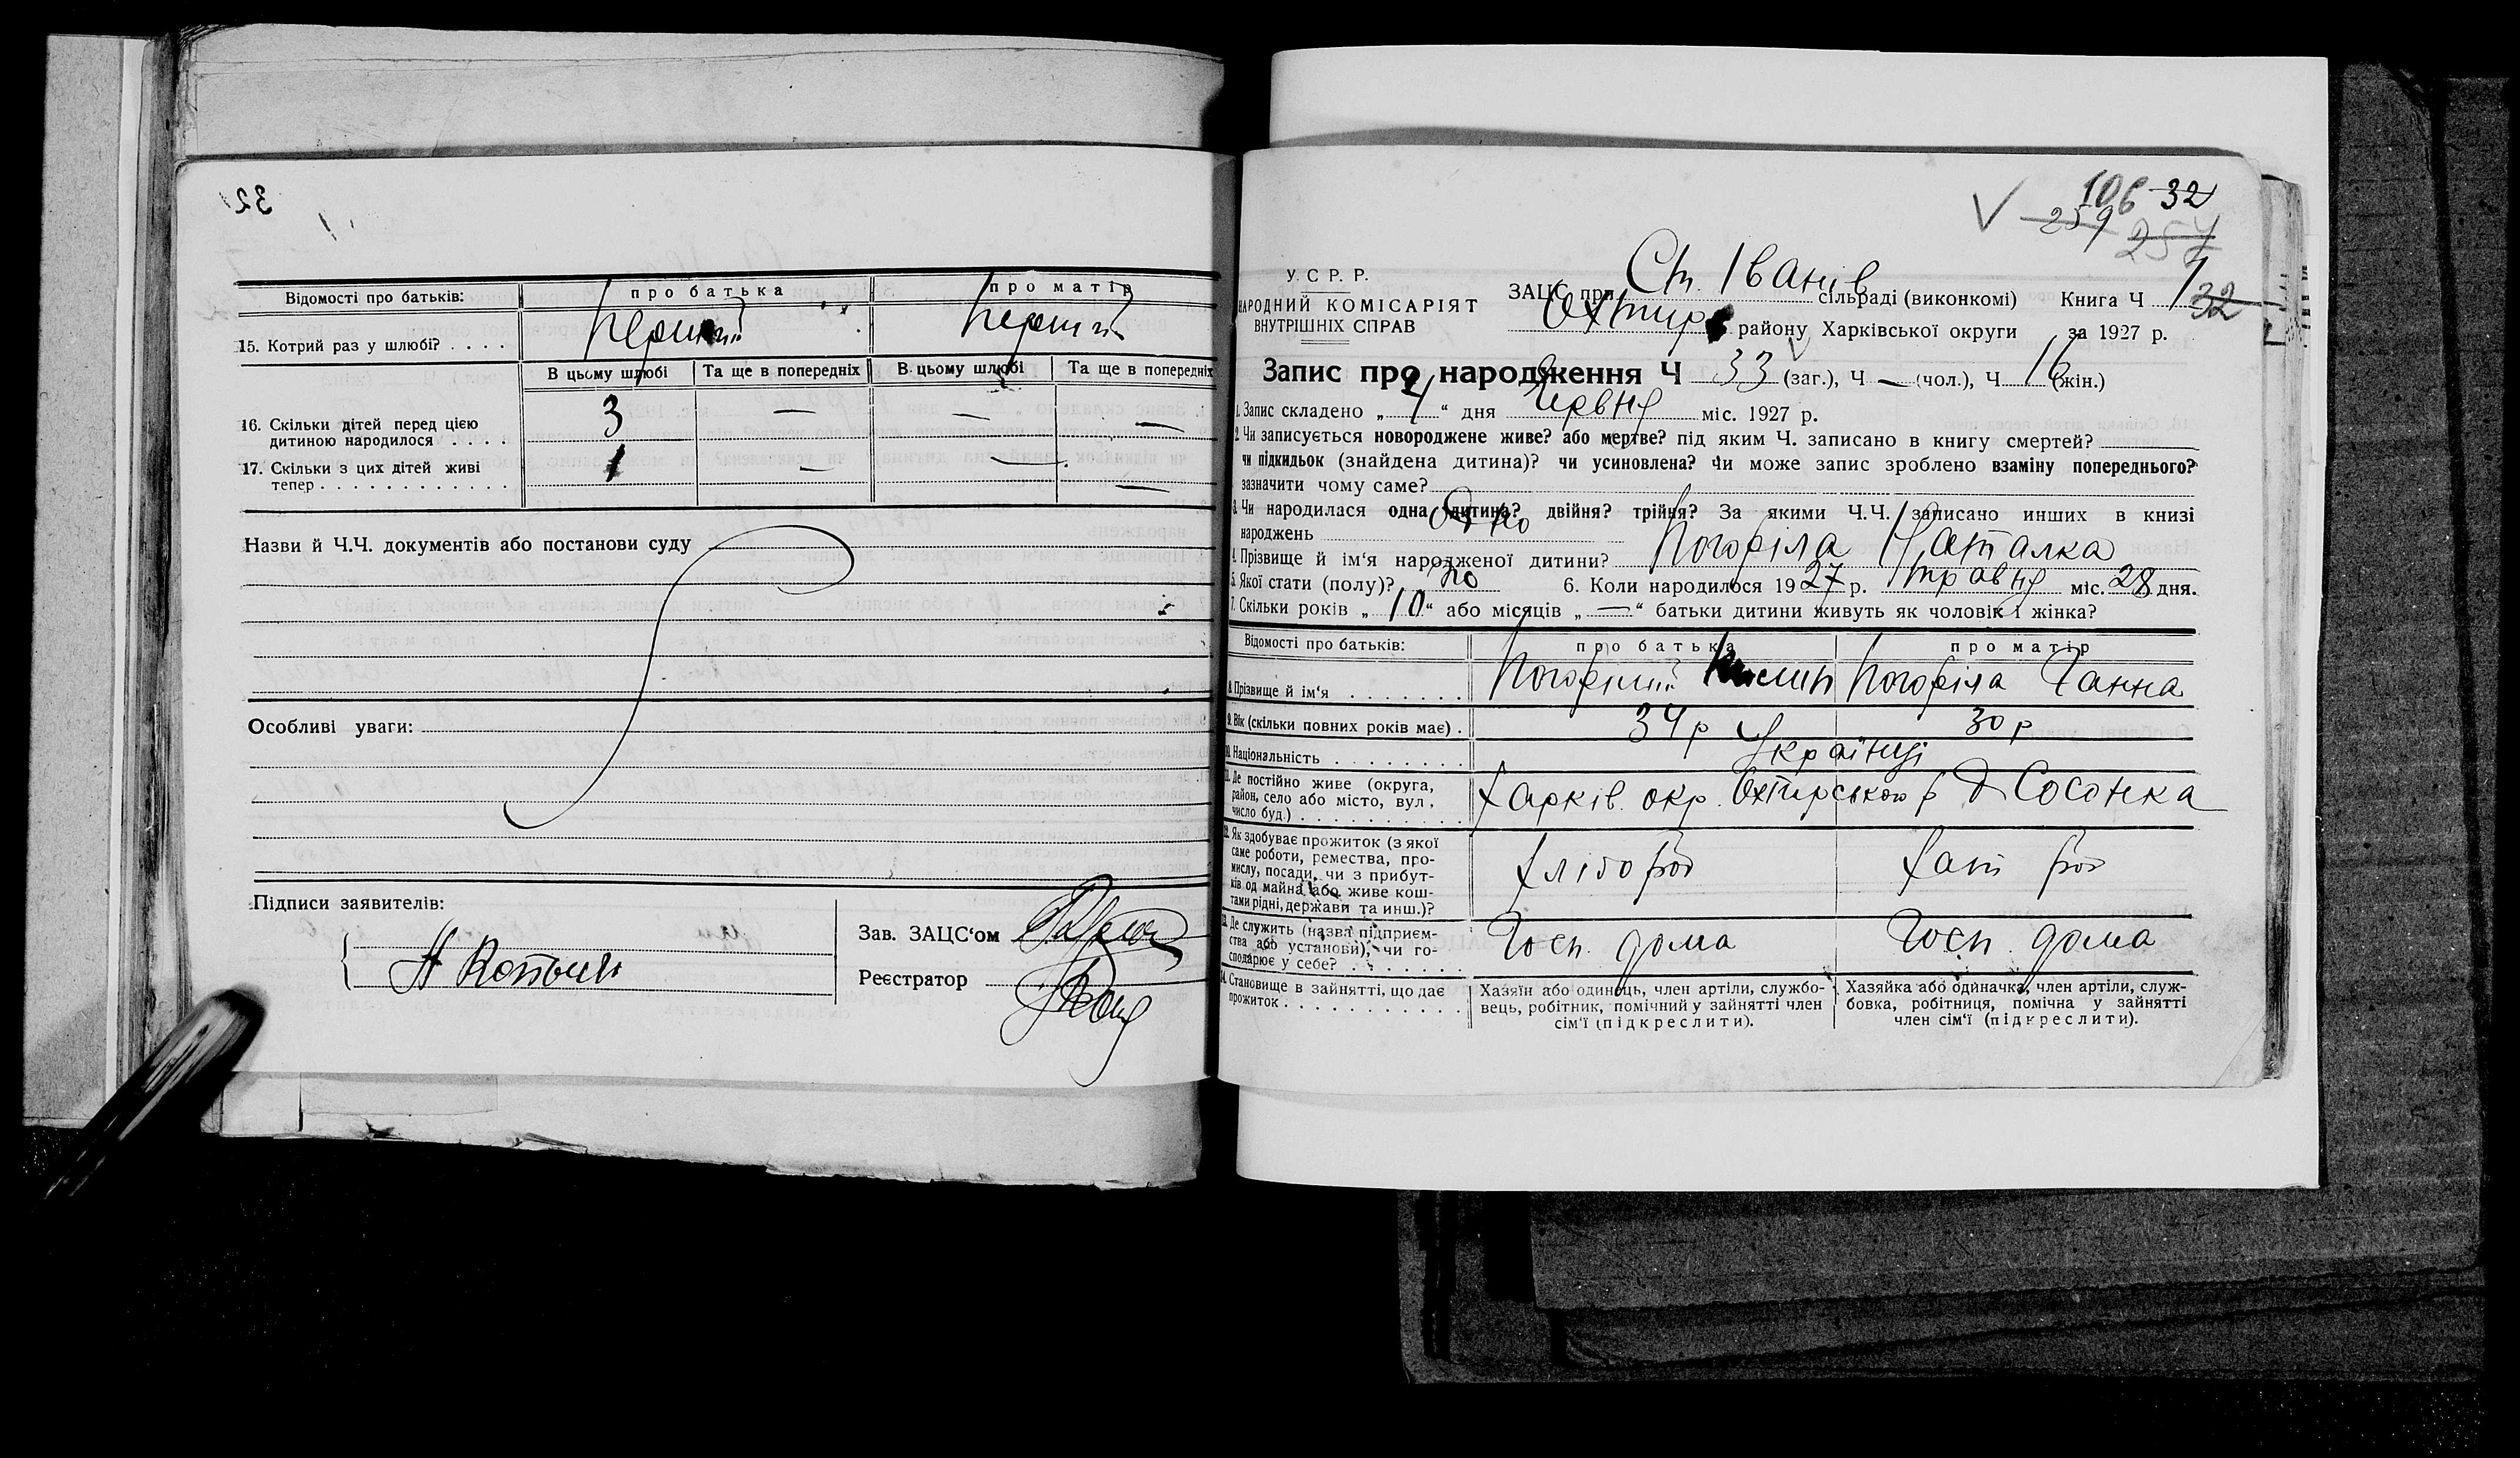 32
Відомості про батьків: про батька про матір
15. Котрий раз у шлюбі? . . . . Перший Перший
В цьому шлюбі Та ще в попередніх В цьому шлюбі Та ще в попередніх
16. Скільки дітей перед цією
дитиною народилося . . . . 3 — — —
17. Скільки з цих дітей живі
тепер . . . . . . . . . . . . 1 — — —
Назви й Ч.Ч. документів або постанови суду
Особливі уваги:
Підписи заявителів:
Зав. ЗАЦС'ом
Реєстратор
106 32
259
257
У. С. Р. Р.
НАРОДНИЙ КОМІСАРІЯТ
ВНУТРІШНІХ СПРАВ
ЗАЦС при Ст. Іванів сільраді (виконкомі) Книга Ч 1
32
Охтир району Харківської округи за 1927 р.
Запис про народження Ч 33 (заг.), Ч — (чол.), Ч 16 (жін.)
1. Запис складено „ 4 “ дня Червня міс. 1927 р.
2. Чи записується новороджене живе? або мертве? під яким Ч. записано в книгу смертей?
чи підкидьок (знайдена дитина)? чи усиновлена? Чи може запис зроблено взаміну попереднього?
зазначити чому саме?
3. Чи народилася одна дитина? двійня? трійня? За якими Ч.Ч. записано инших в книзі
народжень Одно
4. Прізвище й ім'я народженої дитини? Погоріла Наталка
5. Якої стати (полу)? жо 6. Коли народилося 1927 р. травня міс. 28 дня.
7. Скільки років „ 10 “ або місяців „ — “ батьки дитини живуть як чоловік і жінка?
Відомості про батьків: про батька про матір
8. Прізвище й ім'я . . . . . . . Погорілий Погоріла Ганна
9. Вік (скільки повних років має) . 34 р 30 р
10. Національність . . . . . . . . Українці
11. Де постійно живе (округа,
район, село або місто, вул.,
число буд.) . . . . . . . . . . Харків. окр. Охтирського р Д Сосонка
12. Як здобуває прожиток (з якої
саме роботи, ремества, про-
мислу, посади, чи з прибут-
ків од майна або живе кош-
тами рідні, держави та инш.)? Хлібороб Хат роб
13. Де служить (назва підприєм-
ства або установи), чи го-
сподарює у себе? . . . . . . . Госп. дома Госп. дома
14. Становище в зайнятті, що дає
прожиток . . . . . . . . . . .
Хазяїн або одинець, член артіли, службо-
вець, робітник, помічний у зайнятті член
сім'ї (підкреслити).
Хазяйка або одиначка, член артіли, служ-
бовка, робітниця, помічна у зайнятті
член сім'ї (підкреслити).